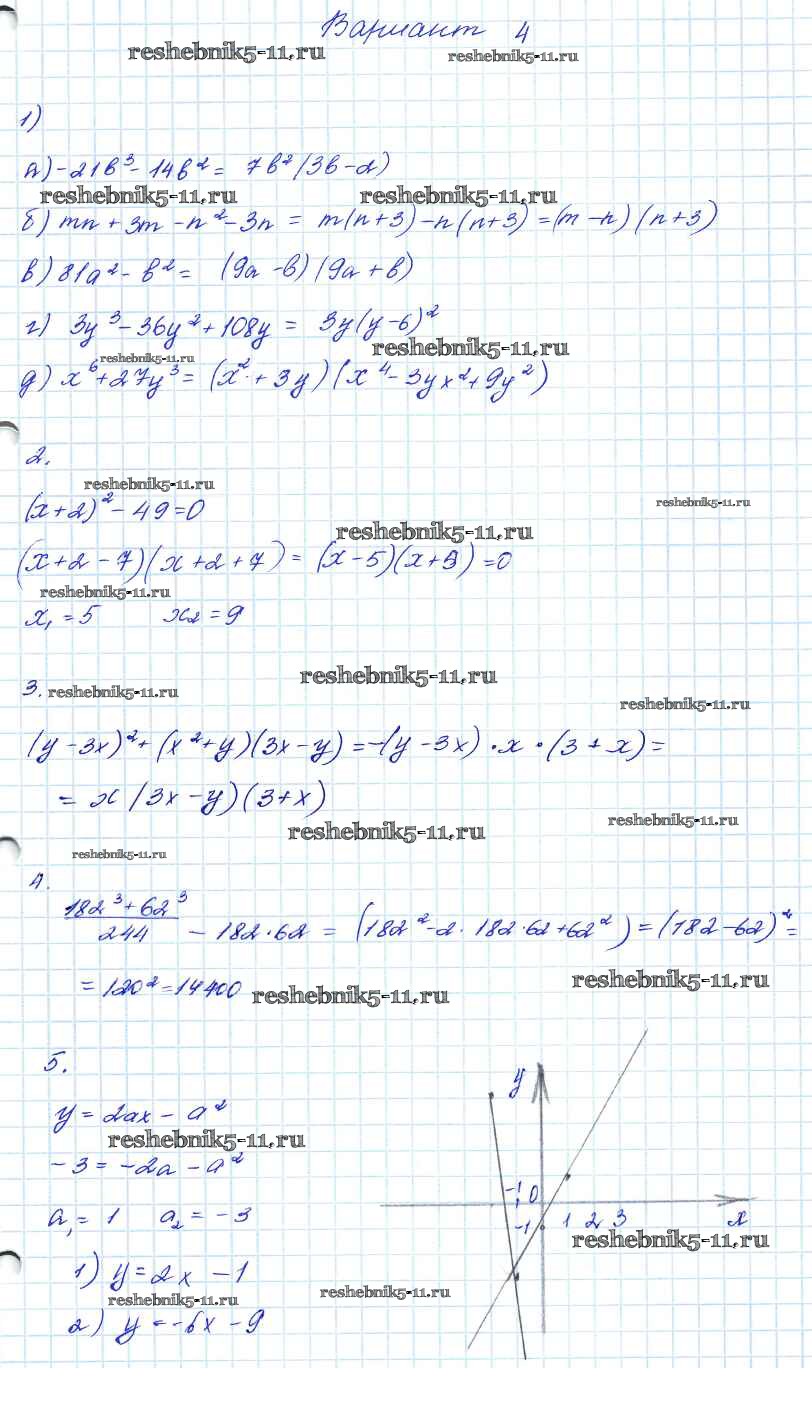 Вариант 4
reshebnik5-11.ru reshebnik5-11.ru
1)
а) -21b³ - 14b² = 7b²(3b - 2)
reshebnik5-11.ru reshebnik5-11.ru
б) mn + 3m - n² - 3n = m(n+3) - n(n+3) = (m - n)(n+3)
в) 81a² - b² = (9a - b)(9a + b)
г) 3y³ - 36y² + 108y = 3y(y - 6)²
reshebnik5-11.ru reshebnik5-11.ru
д) x⁶ + 27y³ = (x² + 3y)(x⁴ - 3yx² + 9y²)
2.
reshebnik5-11.ru reshebnik5-11.ru
(x+2)² - 49 = 0
reshebnik5-11.ru
(x+2-7)(x+2+7) = (x-5)(x+9) = 0
reshebnik5-11.ru
x₁ = 5 x₂ = 9
reshebnik5-11.ru
3. reshebnik5-11.ru reshebnik5-11.ru
(y - 3x)² + (x² + y)(3x - y) = -(y - 3x) · x · (3 + x) =
= x(3x - y)(3+x)
reshebnik5-11.ru reshebnik5-11.ru
reshebnik5-11.ru
4.
(182³ + 62³)/244 - 182·62 = (182² - 2·182·62 + 62²) = (182 - 62)² =
= 120² = 14400 reshebnik5-11.ru reshebnik5-11.ru
5.
y = 2ax - a²
reshebnik5-11.ru
-3 = -2a - a²
a₁ = 1 a₂ = -3
1) y = 2x - 1
reshebnik5-11.ru reshebnik5-11.ru
2) y = -6x - 9
y
-1 0
-1 1 2 3 x
reshebnik5-11.ru